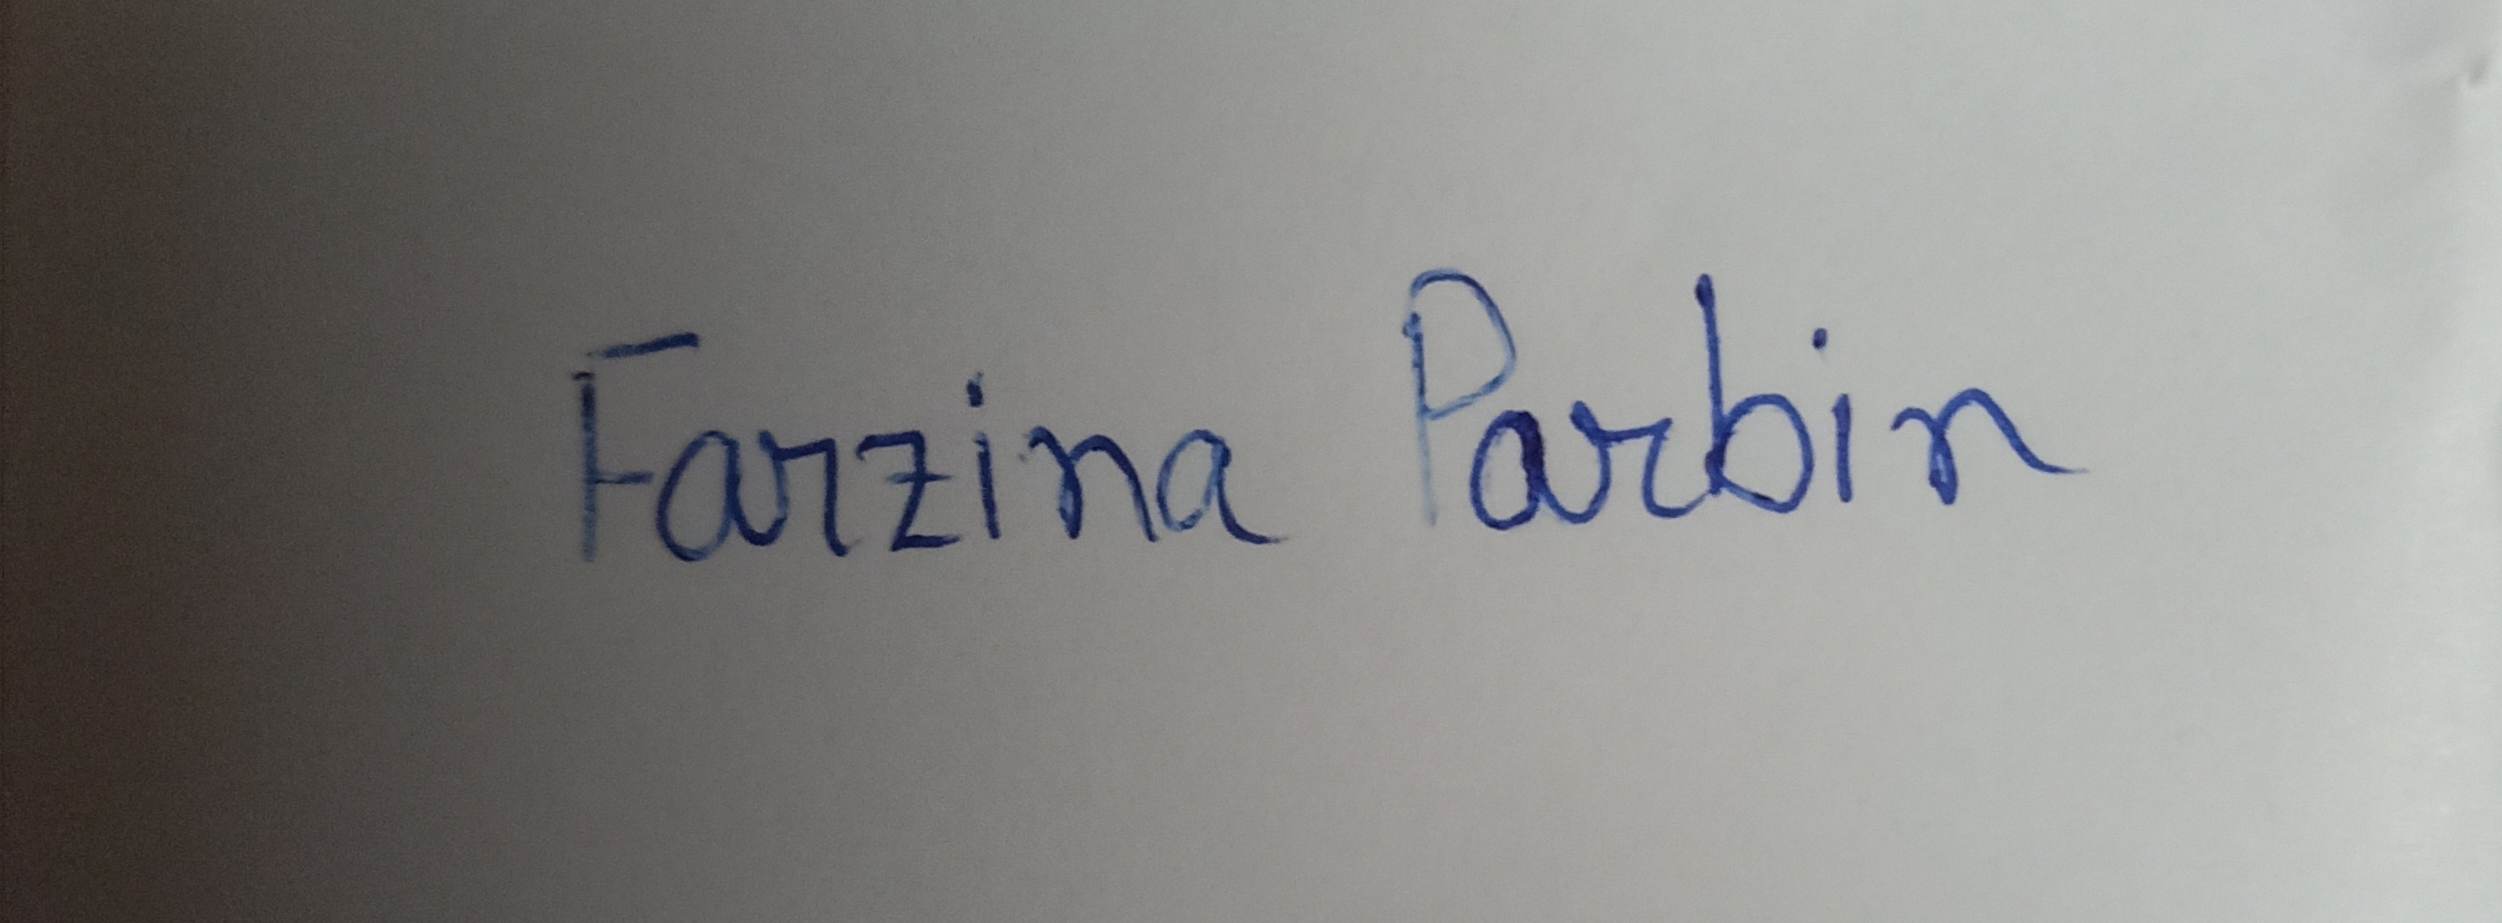 Farzina Parbin